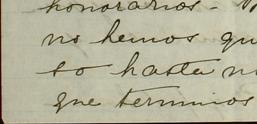 honorarios.
no hemos qu
to hasta n
que terminos